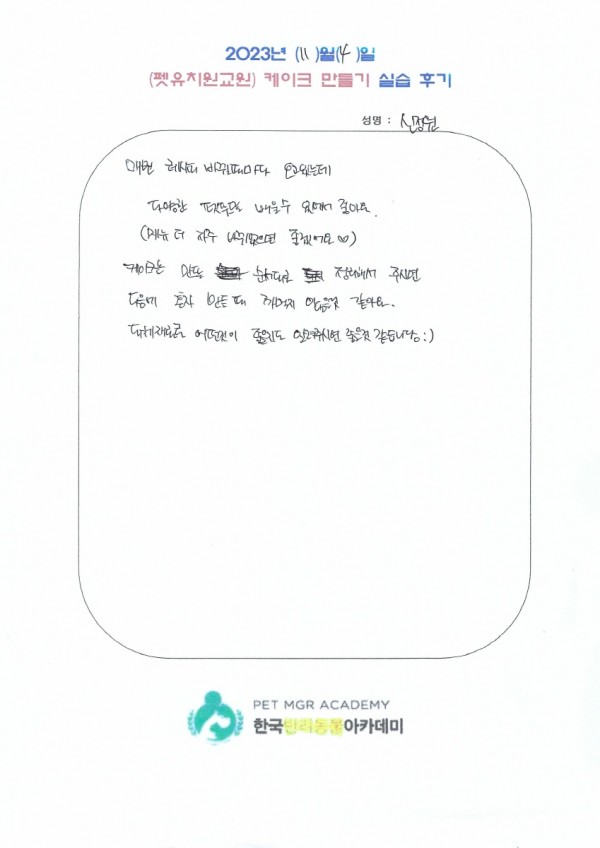 2023년 (11)월(4)일
(펫유치원교원) 케이크 만들기 실습 후기
성명 : 신정원
매번 레시피 바뀔때마다 오고있는데
다양한 펫푸드를 배울수 있어서 좋아요.
(메뉴 더 자주 바뀌었으면 좋겠어요♡)
케이크는 만드는 순서대로 정리해서 주시면
다음에 혼자 만들 때 헷갈리지 않을것 같아요.
대체재료로 어떤것이 좋을지도 알려주시면 좋을것 같습니당:)
PET MGR ACADEMY
한국반려동물아카데미